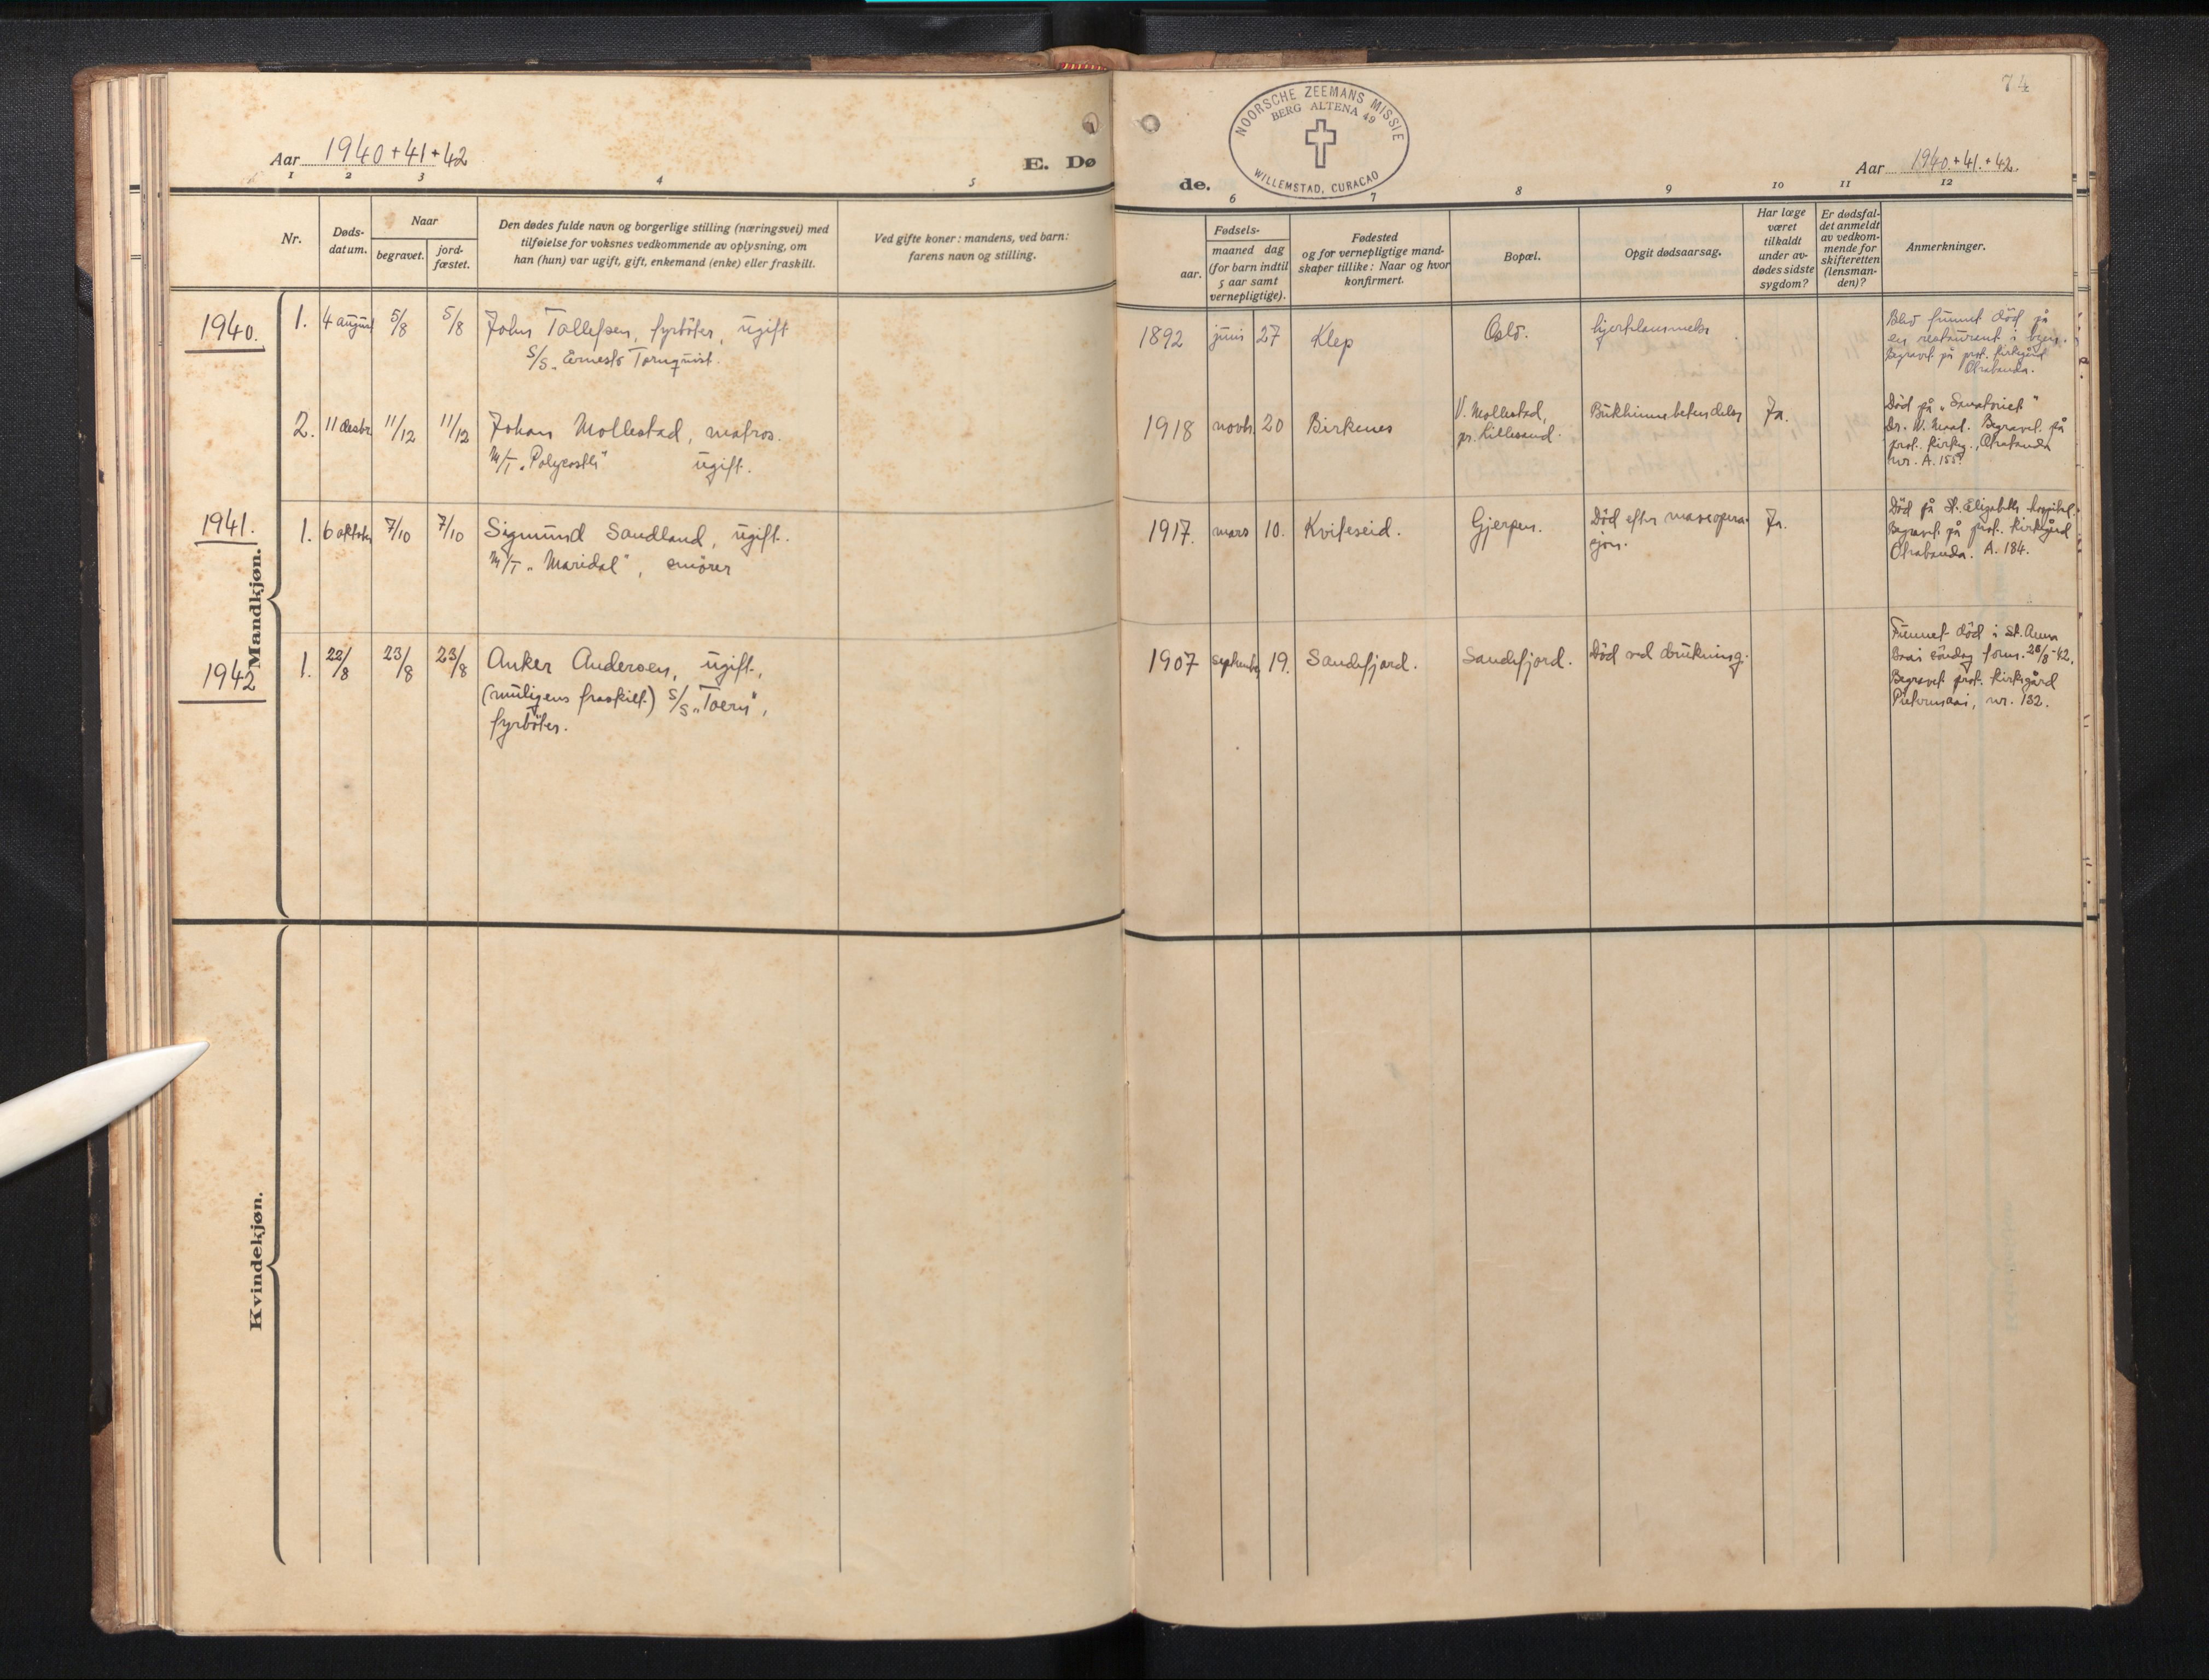 74
NOORSCHE ZEEMANS MISSIE
BERG ALTENA 49
WILLEMSTAD, CURACAO
Aar 1940+41+42
E. Dø
de.
Aar 1940.+41.+42.
1 2 3 4 5 6 7 8 9 10 11 12
Nr.
Døds-
datum.
Naar
begravet.
jord-
fæstet.
Den dødes fulde navn og borgerlige stilling (næringsvei) med
tilføielse for voksnes vedkommende av oplysning, om
han (hun) var ugift, gift, enkemand (enke) eller fraskilt.
Ved gifte koner: mandens, ved barn:
farens navn og stilling.
Fødsels-
aar.
maaned dag
(for barn indtil
5 aar samt
vernepligtige).
Fødested
og for vernepligtige mand-
skaper tillike: Naar og hvor
konfirmert.
Bopæl.
Opgit dødsaarsag.
Har læge
været
tilkaldt
under av-
dødes sidste
sygdom?
Er dødsfal-
det anmeldt
av vedkom-
mende for
skifteretten
(lensman-
den)?
Anmerkninger.
Mandkjøn.
1940.
1. 4 august 5/8 5/8 John Tollefsen, fyrböter, ugift
S/S „Ernesto Tornquist.
1892 juni 27 Klep Oslo.
Blev funnet död på
en restaurant i byen.
Begravet på prot. kirkegård
Otrabanda.
2. 11 desbr 11/12 11/12 Johan Mollestad, matros.
M/T „Polycastle" ugift.
1918 novb. 20 Birkenes
V. Mollestad,
pr. Lillesand.
Bukhinnebetendelse Ja.
Död på „Sanatoriet"
Dr. V. Maal. Begravet på
prot. kirkeg., Otrabanda
nr. A. 155.
1941.
1. 6 oktober 7/10 7/10 Sigmund Sandland, ugift.
M/T „Maridal", smörer
1917. mars 10. Kviteseid. Gjerpen.
Död efter maveopera-
sjon.
Ja.
Död på St. Elizabeths hospital.
Begravet på prot. kirkegård
Otrabanda. A. 184.
1942
1. 22/8 23/8 23/8 Anker Andersen, ugift,
(muligens fraskilt) S/S „Toern",
fyrböter.
1907 september 19. Sandefjord. Sandefjord. Död ved drukning.
Funnet död i St. Anna
Baai söndag form. 23/8-42.
Begravet prot. kirkegård
Pietermaai, nr. 132.
Kvindekjøn.